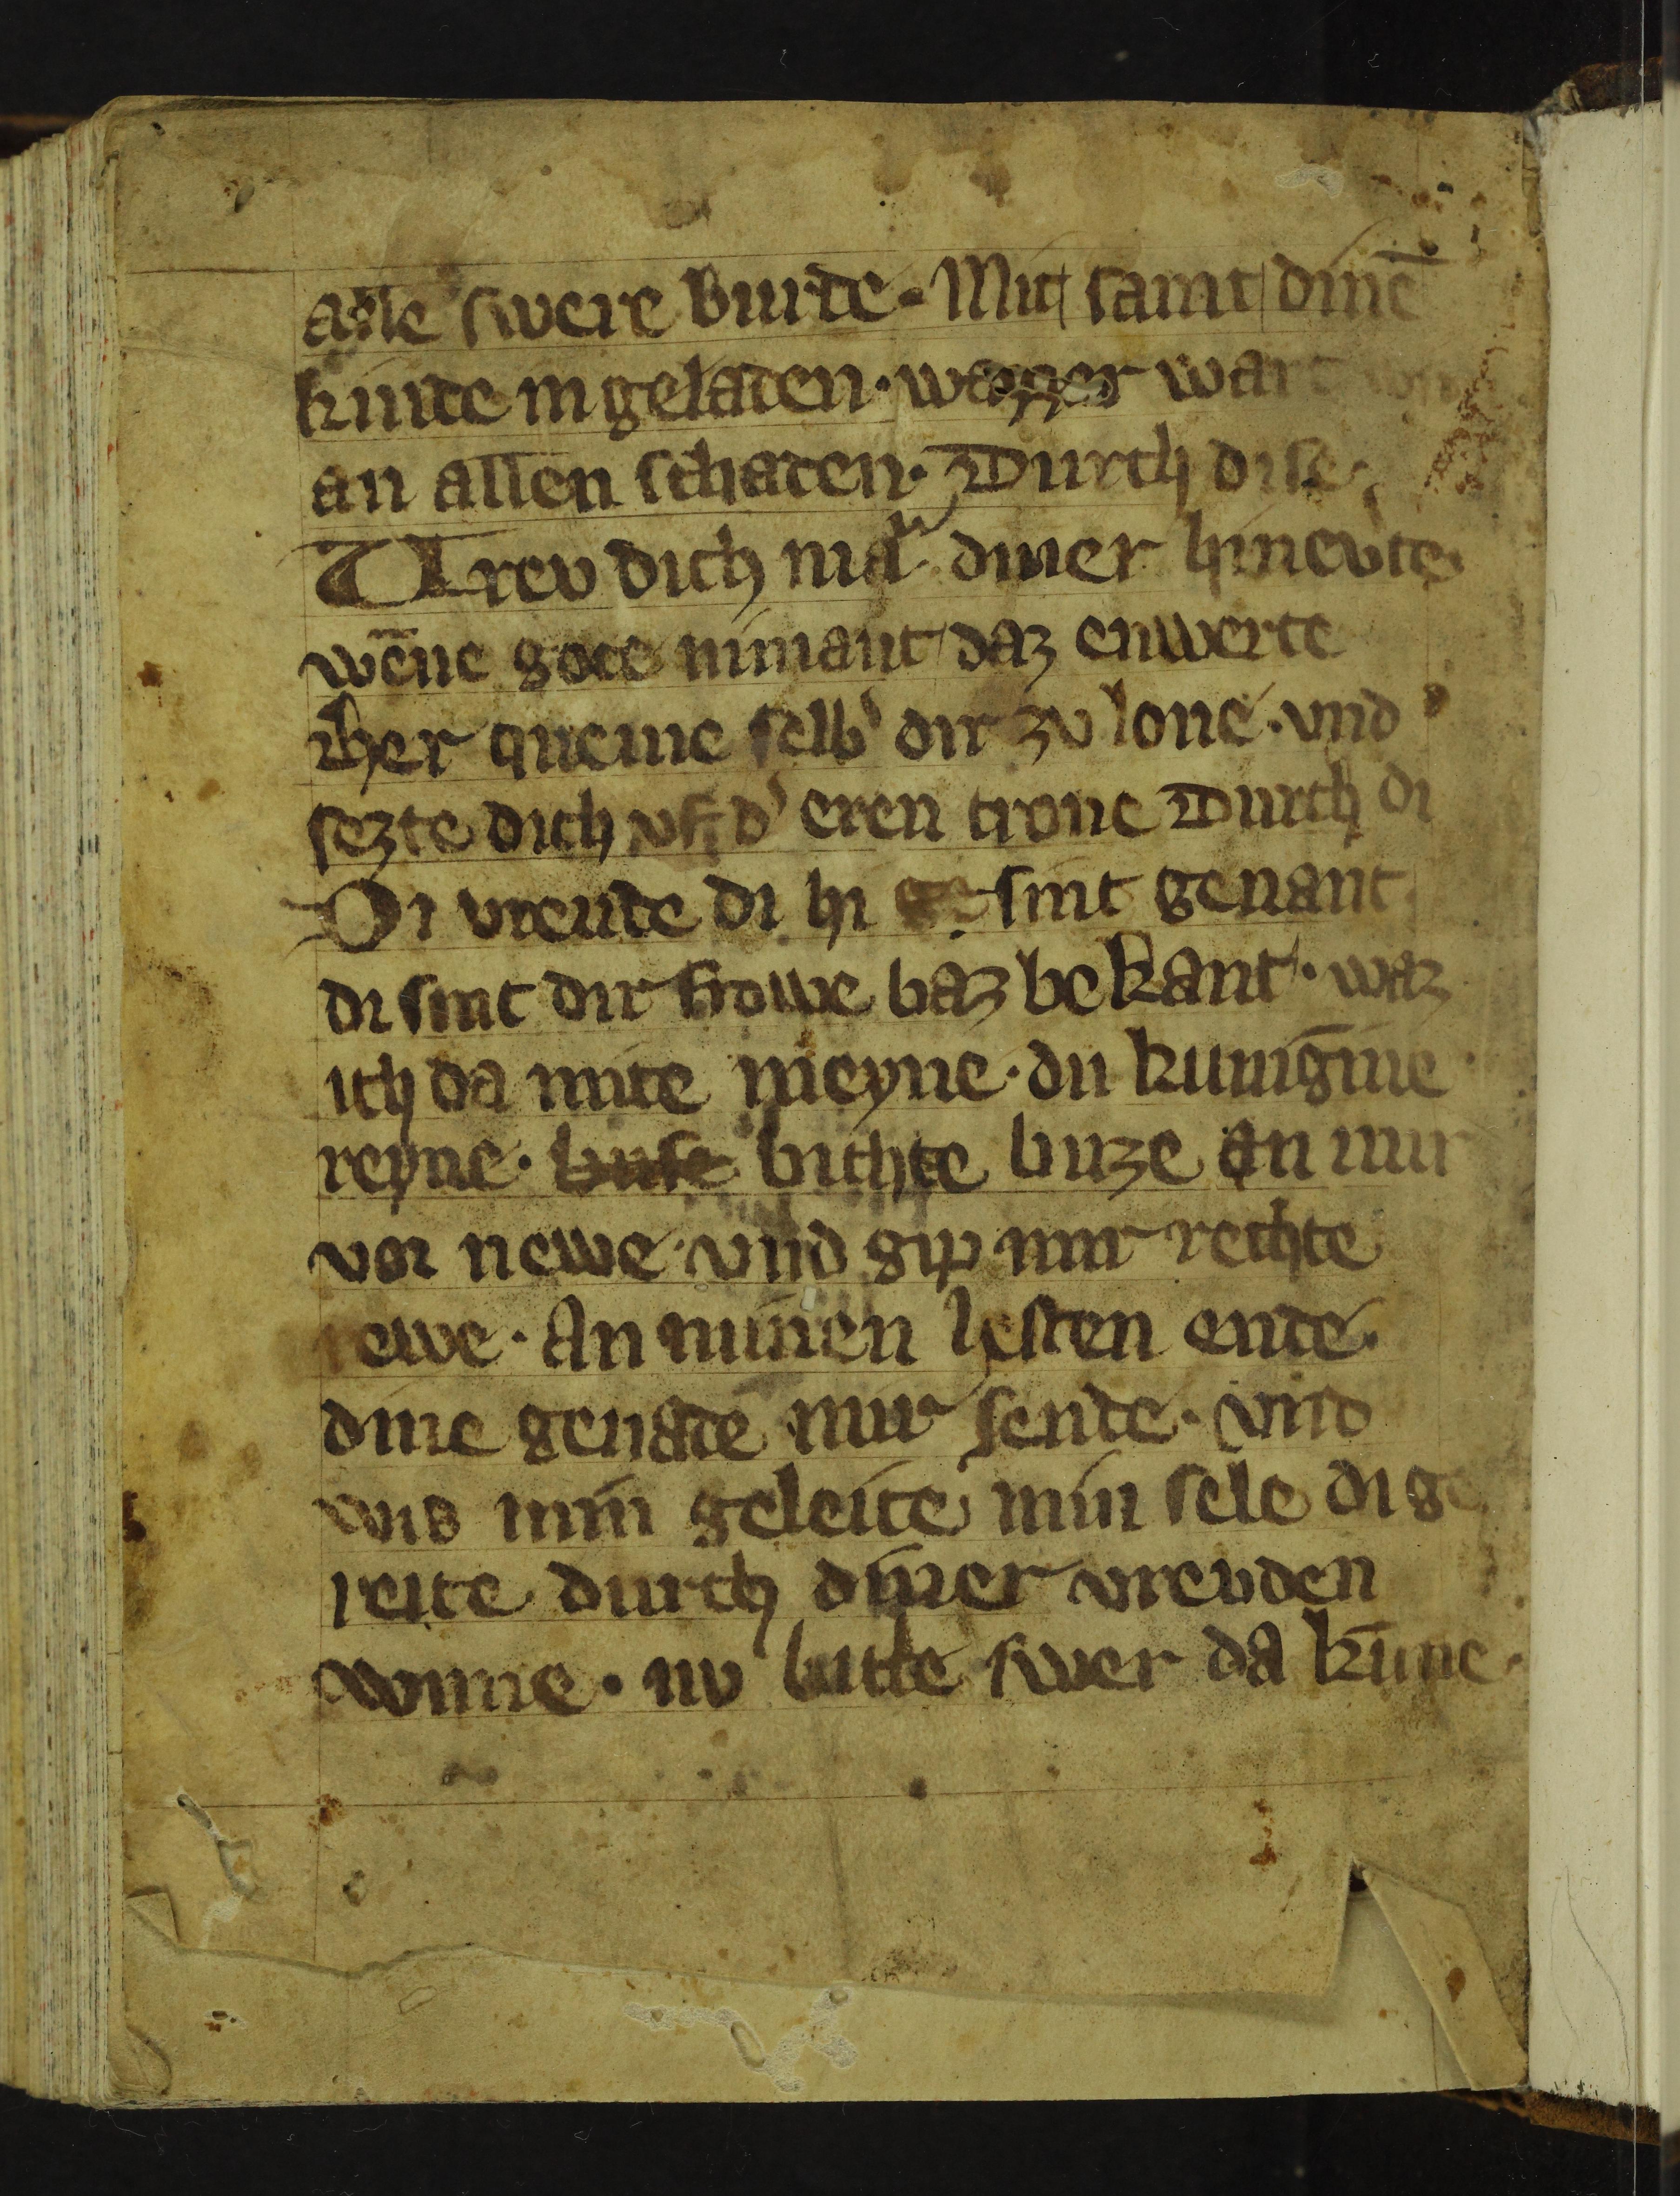 alle swere burde. Mit samt dinē
kinde in geladen. wazzer wart
an allen schaten. Durch dise.
Vrev dich ma͛ diner hineverte
wēne gote nimant daz enwerte
Eher queme selb᾽ dir zv lone. vnd
sezte dich vf d᾽ eren trone Durch di
Di vreude di hi sint genant
di sint dir frowe baz bekant. waz
ich da mite meyne. du kunigīne
reyne. buse bichte buze an mir
vor newe. vnd gip mir rechte
rewe. An minen lesten ende.
dine genade mir sende. vnd
wis min geleite min sele di ge
reite durch diner vreuden
wnne. nv bitte swer da kūne.